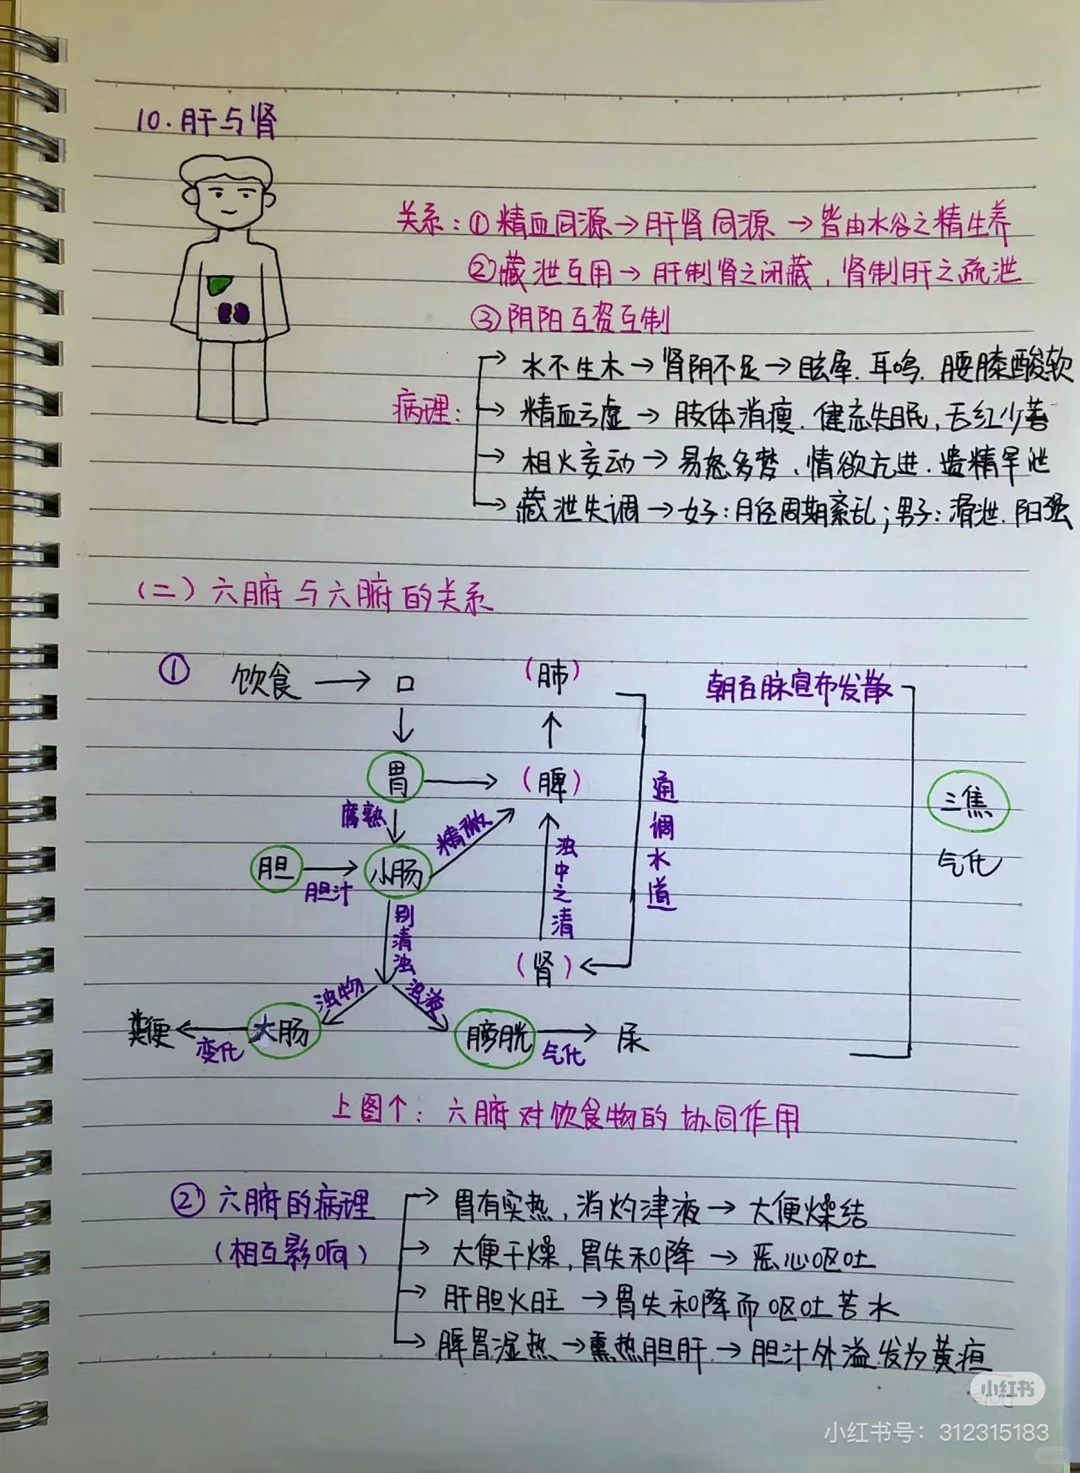 10.肝与肾
关系:①精血同源→肝肾同源→皆由水谷之精生养
②藏泄互用→肝制肾之闭藏,肾制肝之疏泄
③阴阳互资互制
病理:
水不生木→肾阴不足→眩晕.耳鸣.腰膝酸软
精血亏虚→肢体消瘦.健忘失眠,舌红少苔
相火妄动→易怒多梦、情欲亢进.遗精早泄
藏泄失调→女子:月经周期紊乱;男子:滑泄.阳强
(二)六腑与六腑的关系
①
饮食→口
(肺)
朝百脉宣布发散
胃→(脾)
通调水道
三焦
气化
腐熟
精微
胆→小肠
胆汁
浊中之清
别清浊
(肾)
浊物
浊液
粪便←大肠
变化
膀胱→尿
气化
上图个:六腑对饮食物的协同作用
②六腑的病理
(相互影响)
胃有实热,消灼津液→大便燥结
大便干燥,胃失和降→恶心呕吐
肝胆火旺→胃失和降而呕吐苦水
脾胃湿热→熏热胆肝→胆汁外溢发为黄疸
小红书
小红书号:312315183